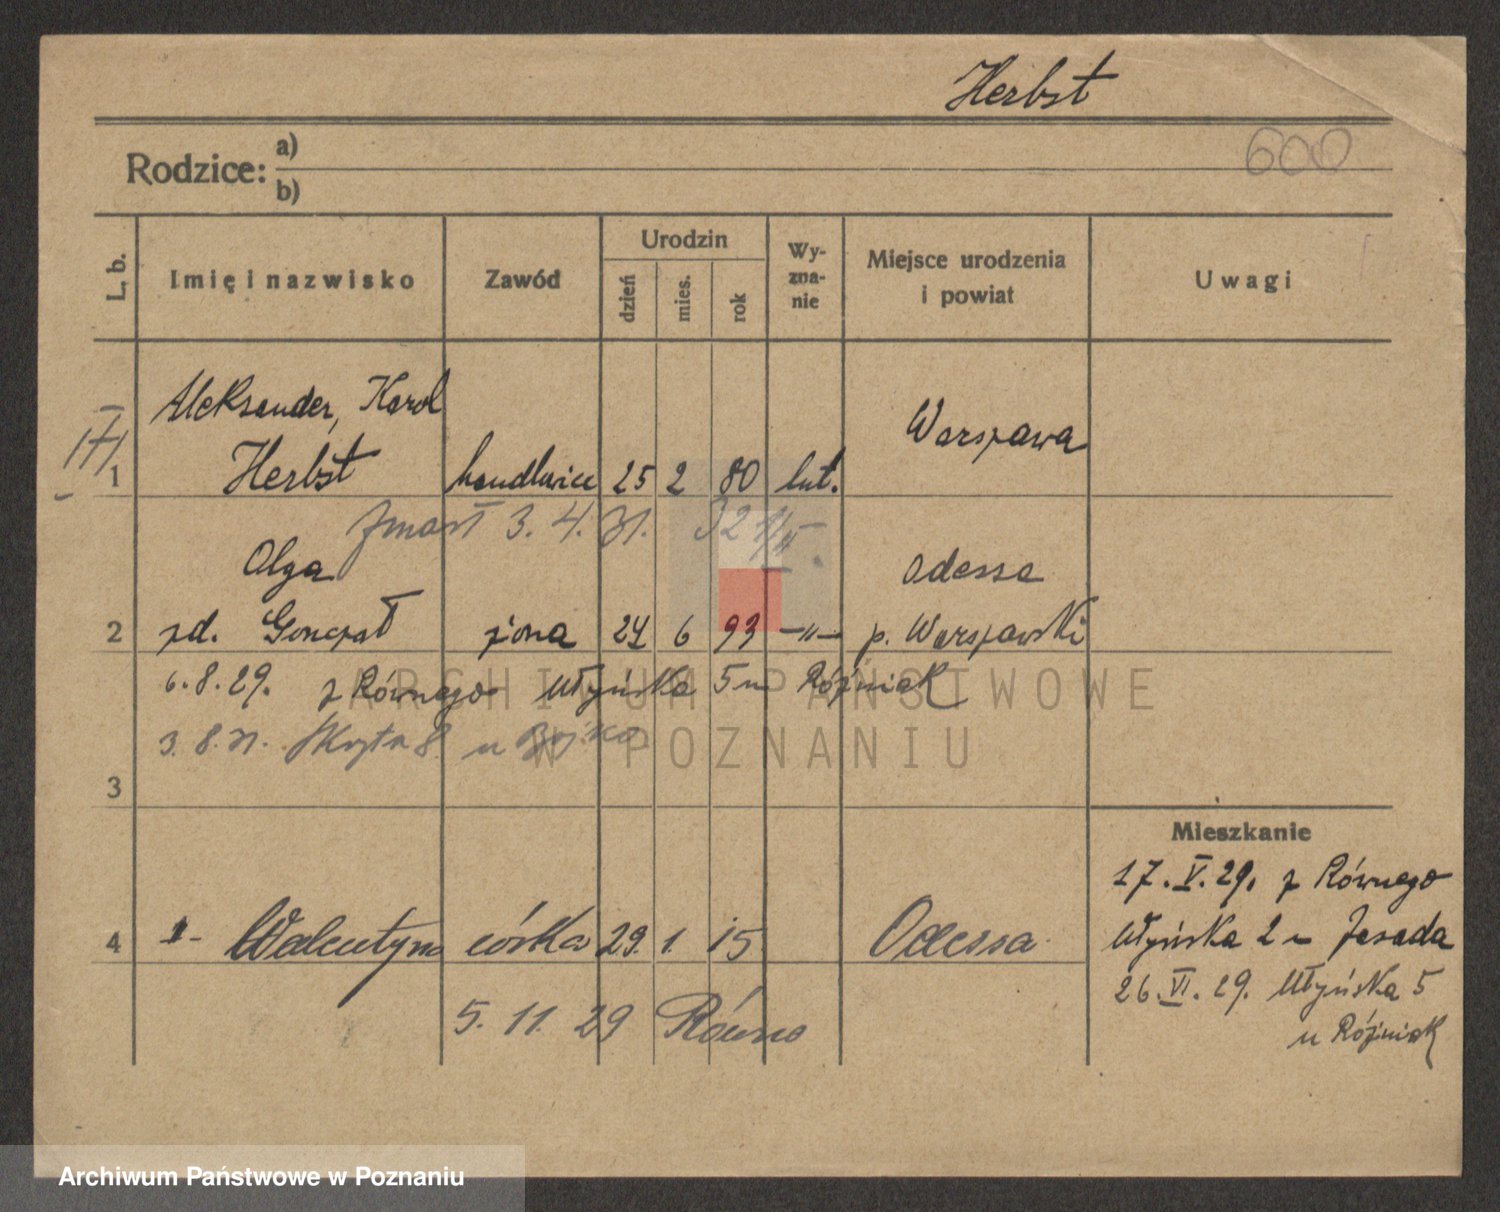 Herbst
600
Rodzice: a)
b)
L. b. Imię i nazwisko Zawód Urodzin dzień mies. rok Wyznanie Miejsce urodzenia i powiat Uwagi
Aleksander, Karol
Warszawa
1 Herbst handlowiec 25 2 80 lut.
zmarł 3. 4. 31.
Olga
Odessa
2 zd. Gonczał żona 24 6 93 —"— p. Warszawski
6.8.29. z Równego Młyńska 5 u Róźniak
3. 8. 31. Skryta 8 u
3
Mieszkanie
17. V. 29. z Równego
4 1- Walentyna córka 29. 1. 15 Odessa
Młyńska 2 u Jasada
26. VI. 29. Młyńska 5
5. 11. 29 Równo
u Róźniak
ARCHIWUM PAŃSTWOWE
W POZNANIU
Archiwum Państwowe w Poznaniu